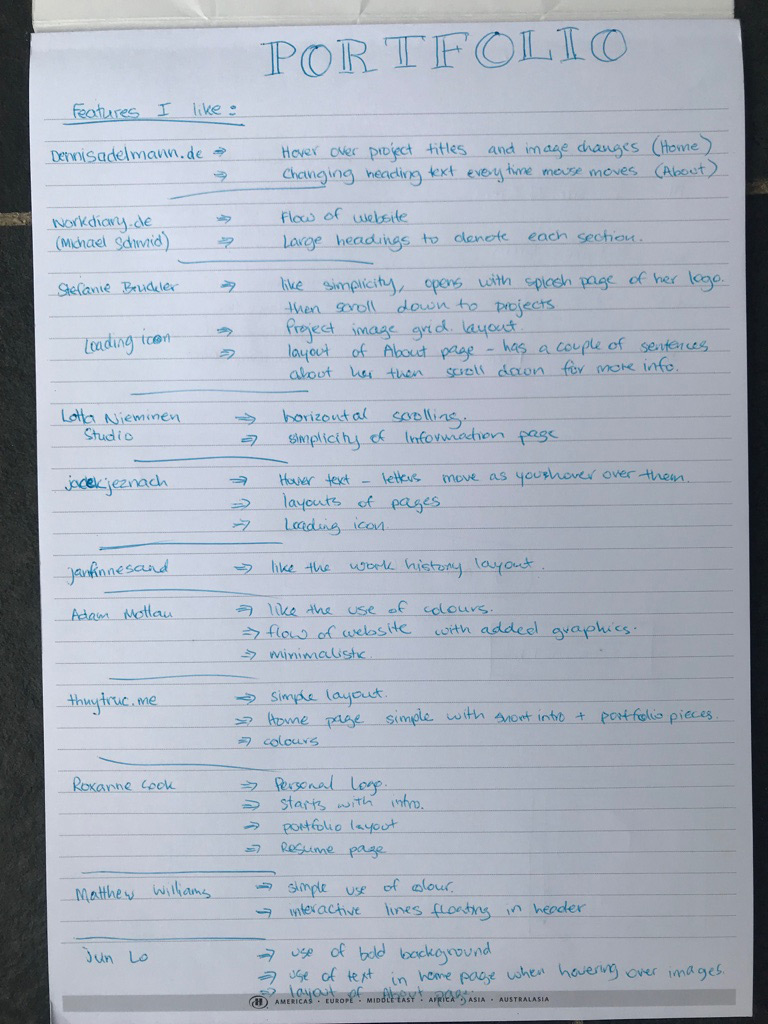 PORTFOLIO
Features I like:
Dennisadelmann.de ⇒ Hover over project titles and image changes (Home)
⇒ Changing heading text everytime mouse moves (About)
workdiary.de ⇒ Flow of website
(Michael Schmid) ⇒ Large headings to denote each section.
Stefanie Bruckler ⇒ like simplicity, opens with splash page of her logo.
then scroll down to projects
Loading icon ⇒ Project image grid layout.
⇒ layout of About page - has a couple of sentences
about her then scroll down for more info.
Lotta Nieminen ⇒ horizontal scrolling.
Studio ⇒ simplicity of Information page
jacekjeznach ⇒ Hover text - letters move as you hover over them.
⇒ layouts of pages
⇒ Loading icon.
janfinnesand ⇒ like the work history layout.
Adam ⇒ like the use of colours.
⇒ flow of website with added graphics.
⇒ minimalistic.
thuytruc.me ⇒ simple layout.
⇒ Home page simple with short intro + portfolio pieces.
⇒ colours
Roxanne Cook ⇒ Personal Logo.
⇒ starts with intro.
⇒ portfolio layout
⇒ Resume page
Matthew Williams ⇒ simple use of colour.
⇒ interactive lines floating in header
Jun Lo ⇒ use of bold background
⇒ use of text in home page when hovering over images.
⇒ layout of About page.
H AMERICAS • EUROPE • MIDDLE EAST • AFRICA • ASIA • AUSTRALASIA